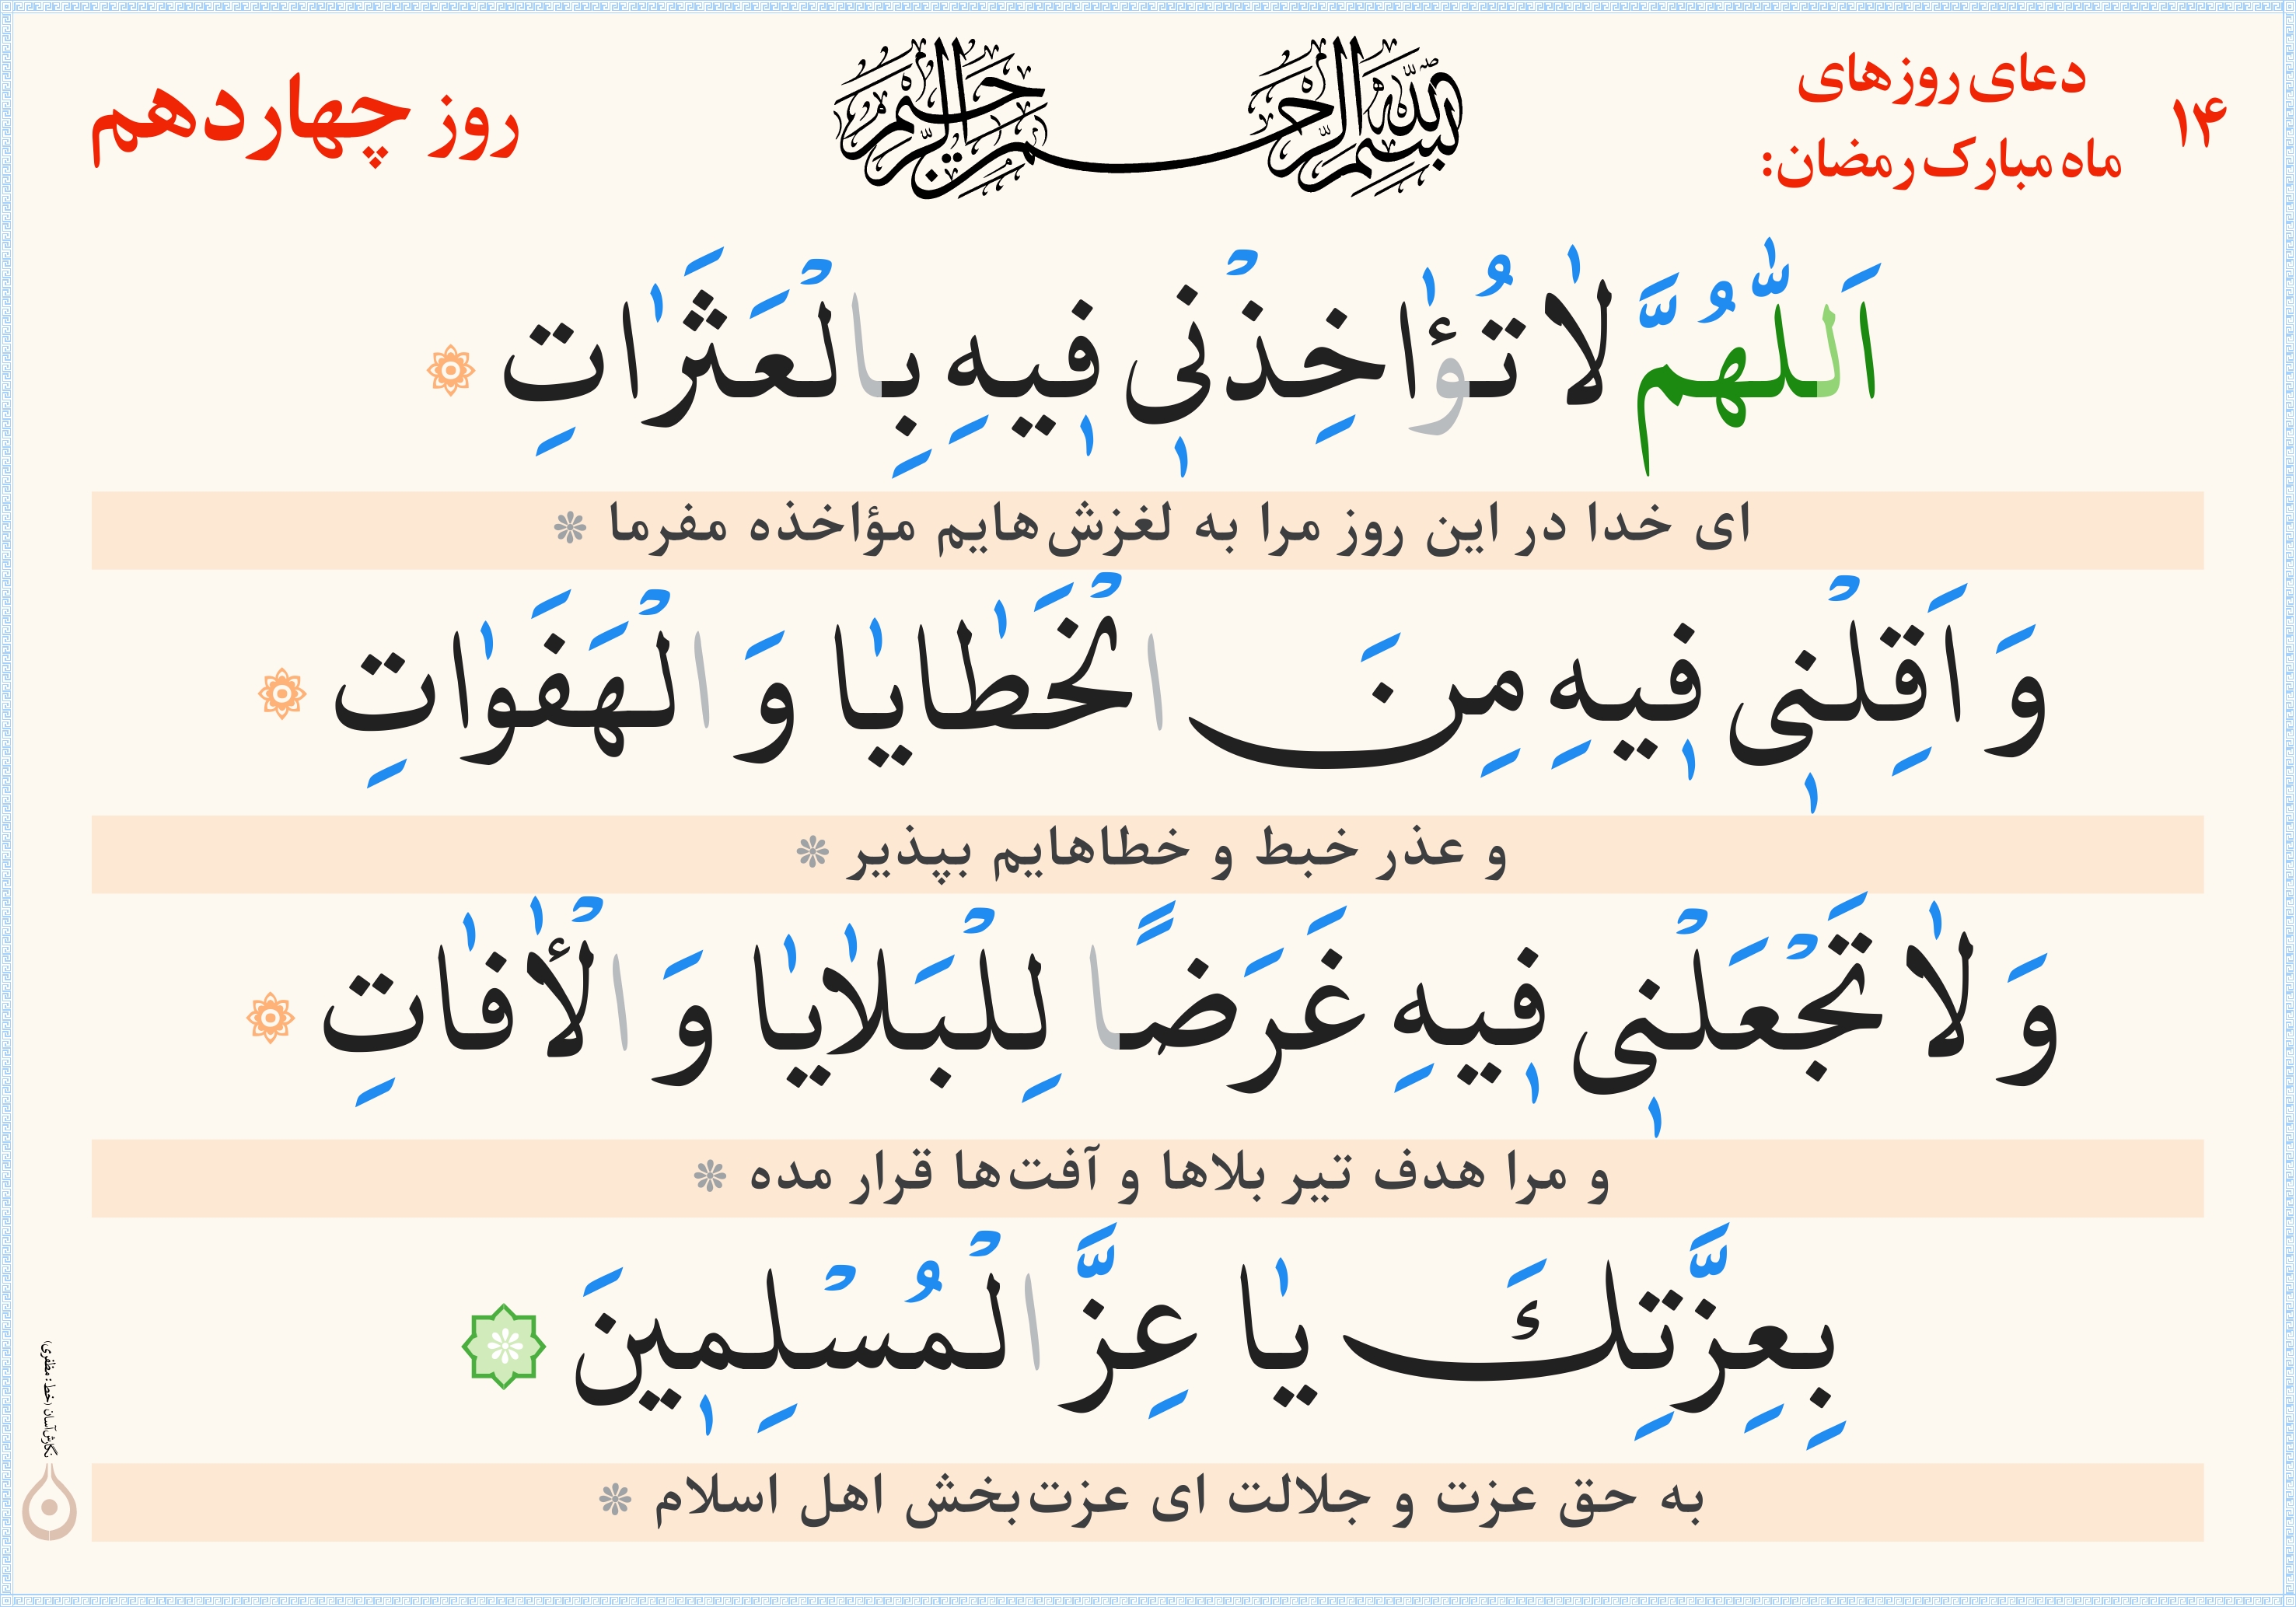 ۱۴
دعای روزهای
ماه مبارک رمضان:
بسم الله الرحمن الرحیم
روز چهاردهم
اَللّٰهُمَّ لاٰ تُؤٰاخِذْنٖی فٖیهِ بِالْعَثَرٰاتِ
ای خدا در این روز مرا به لغزش‌هایم مؤاخذه مفرما
وَ اَقِلْنٖی فٖیهِ مِنَ الْخَطٰایٰا وَ الْهَفَوٰاتِ
و عذر خبط و خطاهایم بپذیر
وَ لاٰ تَجْعَلْنٖی فٖیهِ غَرَضًا لِلْبَلاٰیٰا وَ الْأٰفٰاتِ
و مرا هدف تیر بلاها و آفت‌ها قرار مده
بِعِزَّتِكَ یٰا عِزَّ الْمُسْلِمٖینَ
به حق عزت و جلالت ای عزت‌بخش اهل اسلام
نگارش آسان (خط: مظفری)